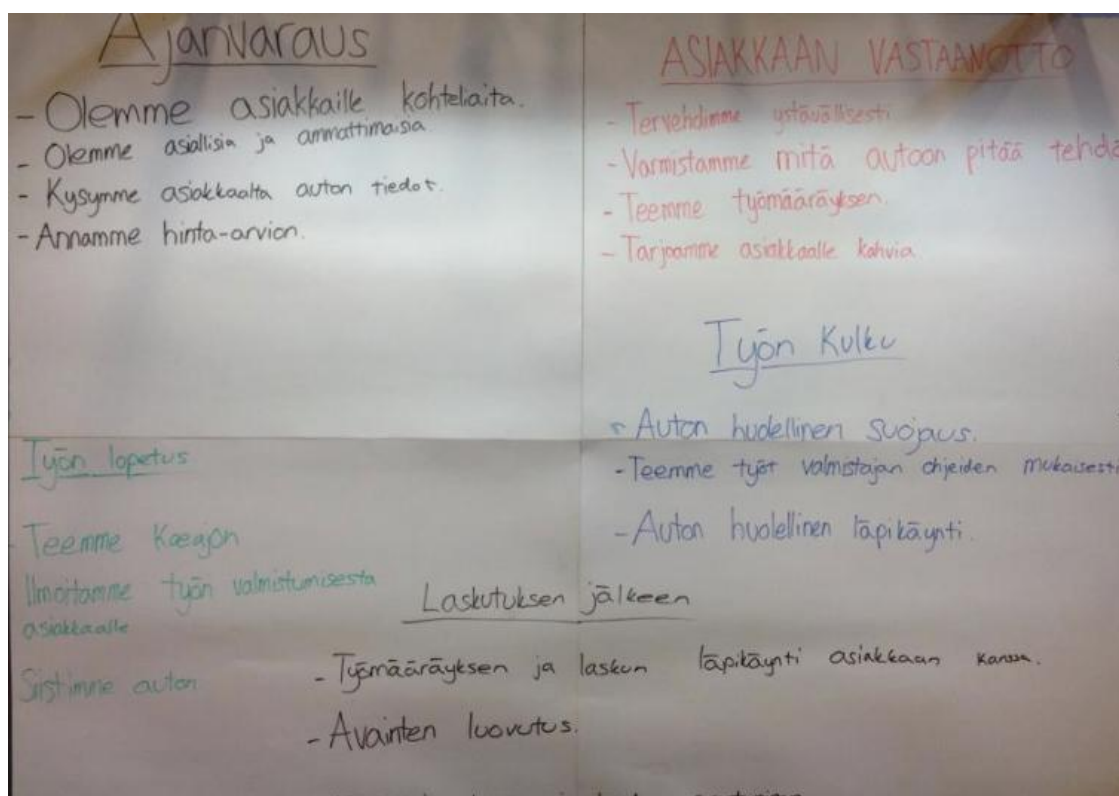 Ajanvaraus
- Olemme asiakkaille kohteliaita.
- Olemme asiallisia ja ammattimaisia.
- Kysymme asiakkaalta auton tiedot.
- Annamme hinta-arvion.
ASIAKKAAN VASTAANOTTO
- Tervehdimme ystävällisesti
- Varmistamme mitä autoon pitää tehdä
- Teemme työmääräyksen.
- Tarjoamme asiakkaalle kahvia.
Työn Kulku
- Auton huolellinen suojaus.
- Teemme työt valmistajan ohjeiden mukaisesti
- Auton huolellinen läpikäynti.
Työn lopetus
- Teemme Koeajon
Ilmoitamme työn valmistumisesta
asiakkaalle
Siistimme auton
Laskutuksen jälkeen
- Työmääräyksen ja laskun läpikäynti asiakkaan kanssa.
- Avainten luovutus.